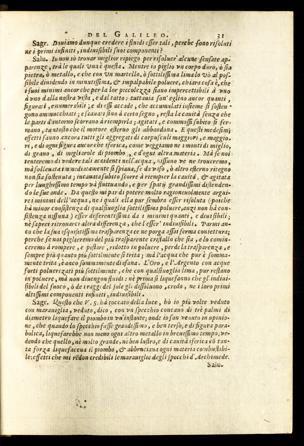 DEL GALILEO. 31
Sagr. Doviamo dunque credere i fluidi esser tali, perche sono risoluti
ne i primi infiniti, indivisibili suoi componenti?
Salu. Io non sò trovar miglior ripiego per risolver alcune sensate ap-
parenze, trà le quali una è questa. Mentre io piglio un corpo duro, ò sia
pietra, ò metallo, e che con un martello, ò sottilissima lima lo vò al pos-
sibile dividendo in minutissima, & impalpabile polvere, chiara cosa è, che
i suoi minimi ancor che per la lor piccolezza siano impercettibili à uno
à uno dalla nostra vista, e dal tatto: tuttavia son'eglino ancor quanti,
figurati, e numerabili: e di essi accade, che accumulati insieme si sosten-
gono ammucchiati; e scavati sino à certo segno, resta la cavità senza che
le parti d'intorno scorrano à riempirla; agitati, e commossi subito si fer-
mano, tantosto che il motore esterno gli abbandona. E questi medesimi
effetti fanno ancora tutti gli aggregati di corpusculi maggiori, e maggio-
ri, e di ogni figura ancor che sferica, come veggiamo ne i monti di miglio,
di grano, di migliarole di piombo, e d'ogni altra materia. Mà se noi
tenteremo di vedere tali accidenti nell'acqua, nissuno ve ne troveremo,
mà sollevata immediatamente si spiana, se da vaso, ò altro esterno ritegno
non sia sostenuta; incavata subito scorre à riempier la cavità, & agitata
per lunghissimo tempo và fluttuando, e per spazii grandissimi distenden-
do le sue onde. Da questo mi par di potere molto ragionevolmente argui-
re i minimi dell'acqua, ne i quali ella pur sembra esser risoluta (poiche
hà minor consistenza di qualsivoglia sottilissima polvere, anzi non hà con-
sistenza nissuna) esser differentissimi da i minimi quanti, e divisibili;
nè saprei ritrovarci altra differenza, che l'esser' indivisibili. Parmi an-
co che la sua esquisitissima trasparenza ce ne porga assai ferma coniettura;
perche se noi piglieremo del più trasparente cristallo che sia, e lo comin-
ceremo à rompere, e pestare, ridotto in polvere, perde la trasparenza, e
sempre più quanto più sottilmente si trita; mà l'acqua che pur è somma-
mente trita, è anco sommamente diafana. L'Oro, e l'Argento con acque
forti polverizati più sottilmente, che con qualsivoglia lima, pur restano
in polvere, mà non divengono fluidi: nè prima si liquefanno che gl'indivi-
sibili del fuoco, ò de i raggi del Sole gli dissolvono, credo, ne i loro primi
altissimi componenti infiniti, indivisibili.
Sagr. Questo che V. S. hà toccato della luce, hò io più volte veduto
con maraviglia, veduto, dico, con uno specchio concavo di tre palmi di
diametro liquefare il piombo in un'instante; onde io son venuto in opinio-
ne, che quando lo specchio fusse grandissimo, e ben terso, e di figura para-
bolica, liquefarebbe non meno ogni altro metallo in brevissimo tempo, ve-
dendo che quello, nè molto grande, nè ben lustro, e di cavità sferica cò tan-
ta forza liquefaceva il piombo, & abbruciava ogni materia combustibi-
le: effetti che mi rédon credibili le maraviglie degli specchi d'Archimede.
Salu.